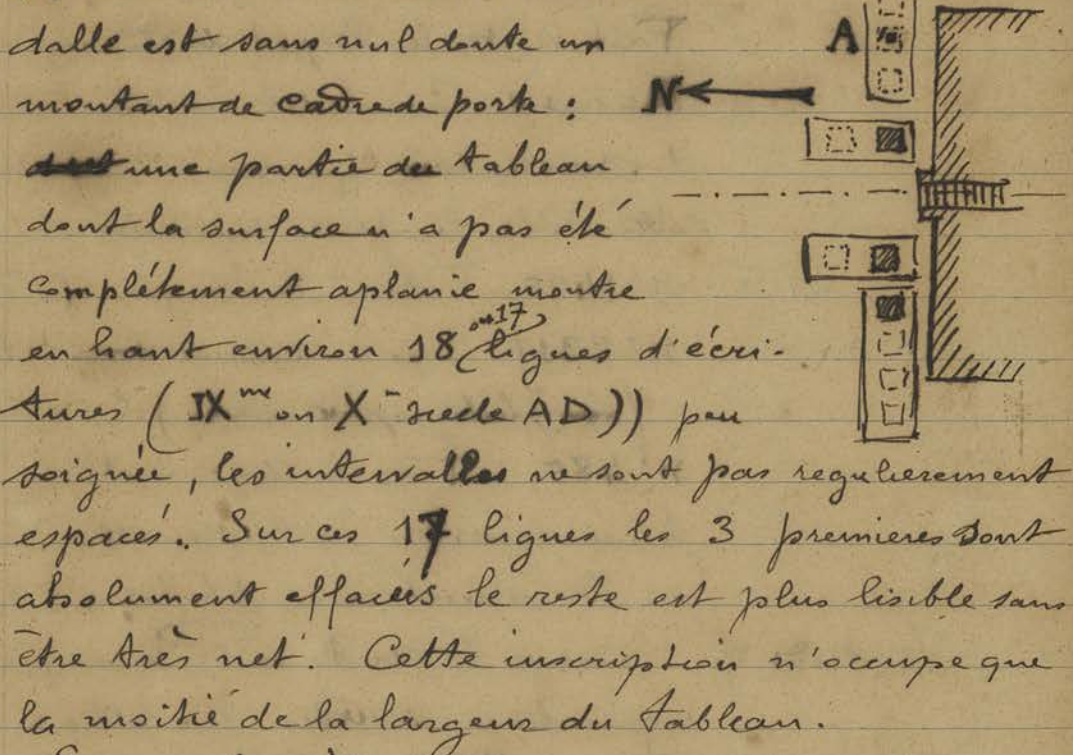 dalle est sans nul doute un
A
montant de cadre de porte :
N
une partie du tableau
dont la surface n'a pas été
complétement aplanie montre
en haut environ 18 ou 17 lignes d'écri-
tures (IXme ou X siecle AD)) peu
soignée, les intervalles ne sont pas regulierement
espacés. Sur ces 17 lignes les 3 premieres sont
absolument effacées le reste est plus lisible sans
être très net. Cette inscription n'occupe que
la moitié de la largeur du tableau.